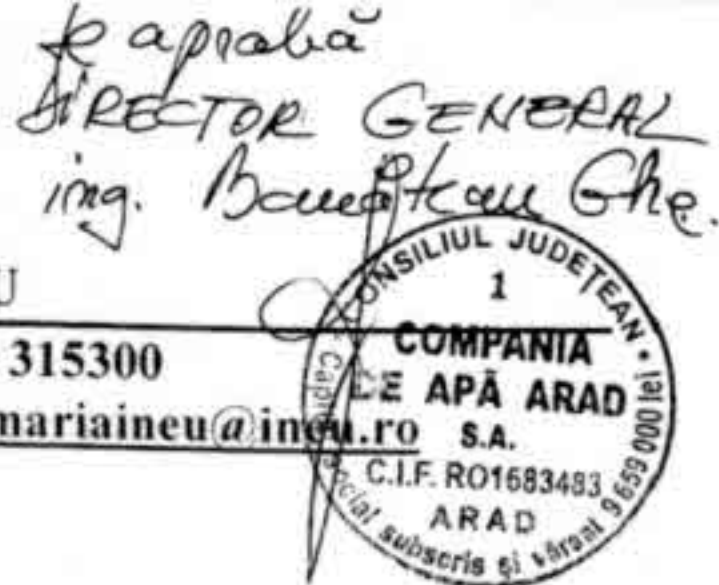 Se aprobă
DIRECTOR GENERAL
ing. Banațean Ghe.
U
315300
mariaineu@ineu.ro
CONSILIUL JUDEȚEAN
1
COMPANIA
DE APĂ ARAD
S.A.
C.I.F. RO1683483
ARAD
social subscris și vărsat 9659000 lei